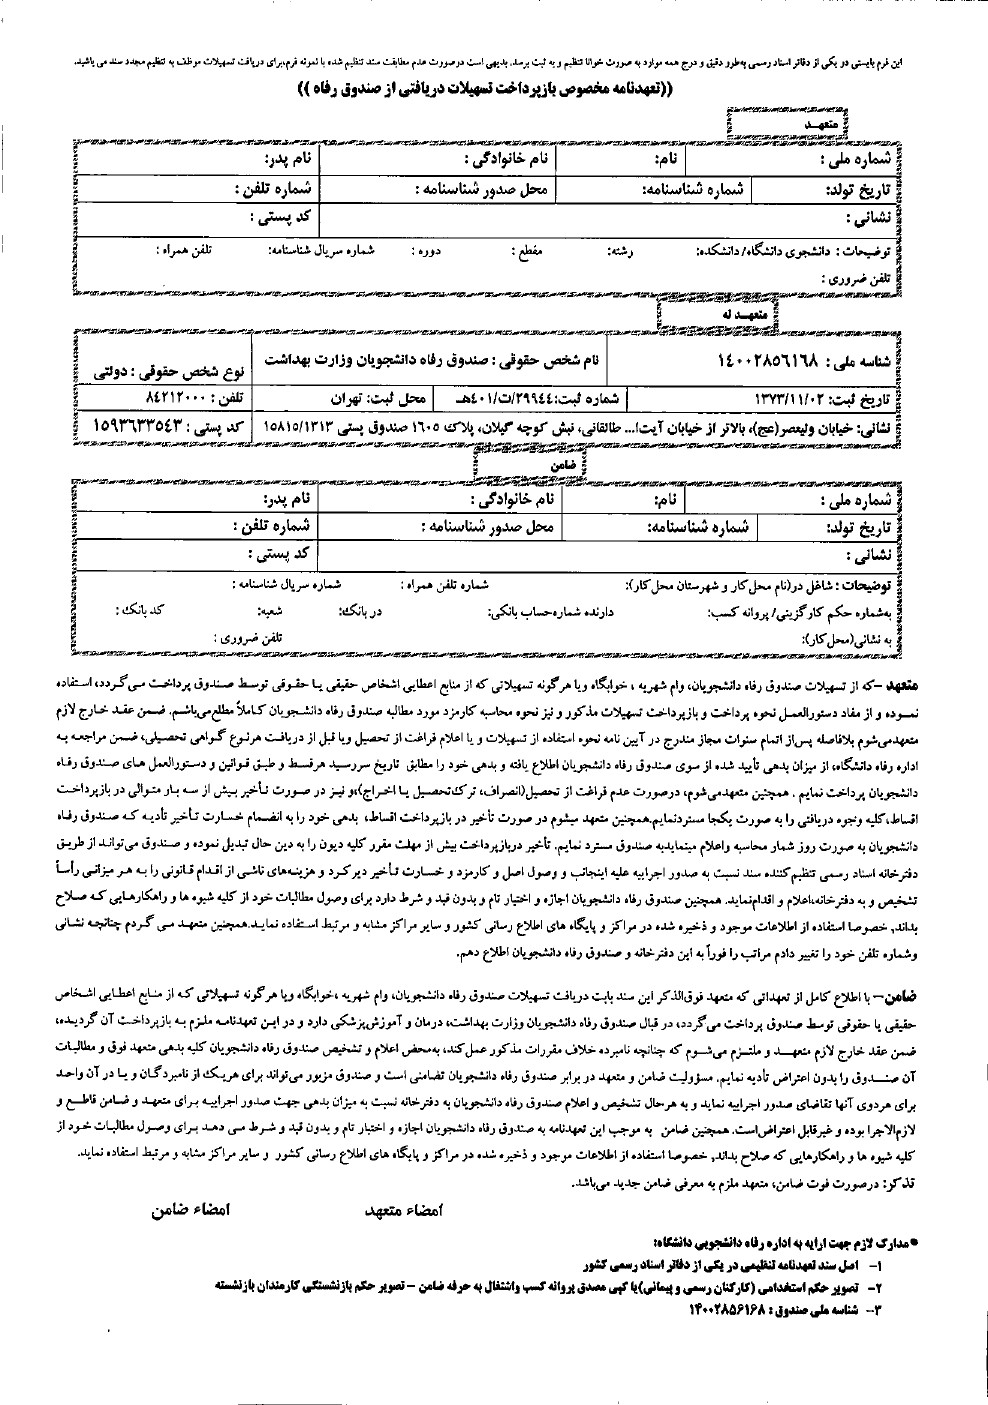 این فرم بایستی در یکی از دفاتر اسناد رسمی بهطرو دقیق و درج همه موارد به صورت خوانا تنظیم و به ثبت برسد. بدیهی است درصورت عدم مطابقت سند تنظیم شده با نمونه فرم،برای دریافت تسهیلات موظف به تنظیم مجدد سند می باشید.
((تعهدنامه مخصوص بازپرداخت تسهیلات دریافتی از صندوق رفاه ))
متعهد
شماره ملی : نام: نام خانوادگی : نام پدر:
تاریخ تولد: شماره شناسنامه: محل صدور شناسنامه : شماره تلفن :
نشانی : کد پستی :
توضیحات : دانشجوی دانشگاه/ دانشکده: رشته: مقطع : دوره : شماره سریال شناسنامه: تلفن همراه :
تلفن ضروری :
متعهد له
شناسه ملی : ۱۴۰۰۲۸۵۶۱۶۸ نام شخص حقوقی : صندوق رفاه دانشجویان وزارت بهداشت نوع شخص حقوقی : دولتی
تاریخ ثبت: ۱۳۷۳/۱۱/۰۲ شماره ثبت:۲۹۹۴۴/ت/۴۰۱هـ محل ثبت: تهران تلفن : ۸۴۲۱۲۰۰۰
نشانی: خیابان ولیعصر(عج)، بالاتر از خیابان آیت‌ا... طالقانی، نبش کوچه گیلان، پلاک ۱۶۰۵ صندوق پستی ۱۵۸۱۵/۱۳۱۳ کد پستی : ۱۵۹۳۶۳۳۵۴۳
ضامن
شماره ملی : نام: نام خانوادگی : نام پدر:
تاریخ تولد: شماره شناسنامه: محل صدور شناسنامه : شماره تلفن :
نشانی : کد پستی :
توضیحات : شاغل در(نام محل کار و شهرستان محل کار): شماره تلفن همراه : شماره سریال شناسنامه :
به‌شماره حکم کارگزینی/ پروانه کسب: دارنده شماره‌حساب بانکی: در بانک: شعبه: کد بانک :
به نشانی(محل کار): تلفن ضروری :
متعهد –که از تسهیلات صندوق رفاه دانشجویان، وام شهریه ، خوابگاه ویا هرگونه تسهیلاتی که از منابع اعطایی اشخاص حقیقی یا حقوقی توسط صندوق پرداخت می‌گردد، استفاده
نموده و از مفاد دستورالعمل نحوه پرداخت و بازپرداخت تسهیلات مذکور و نیز نحوه محاسبه کارمزد مورد مطالبه صندوق رفاه دانشجویان کاملاً مطلع می‌باشم. ضمن عقد خارج لازم
متعهدمی‌شوم بلافاصله پس‌از اتمام سنوات مجاز مندرج در آیین نامه نحوه استفاده از تسهیلات و یا اعلام فراغت از تحصیل ویا قبل از دریافت هرنوع گواهی تحصیلی، ضمن مراجعه به
اداره رفاه دانشگاه، از میزان بدهی تأیید شده از سوی صندوق رفاه دانشجویان اطلاع یافته و بدهی خود را مطابق تاریخ سررسید هرقسط و طبق قوانین و دستورالعمل های صندوق رفاه
دانشجویان پرداخت نمایم . همچنین متعهدمی‌شوم، درصورت عدم فراغت از تحصیل(انصراف، ترک‌تحصیل یا اخراج)،و نیز در صورت تأخیر بیش از سه بار متوالی در بازپرداخت
اقساط،کلیه وجوه دریافتی را به صورت یکجا مستردنمایم.همچنین متعهد میشوم در صورت تأخیر در بازپرداخت اقساط، بدهی خود را به انضمام خسارت تأخیر تأدیه که صندوق رفاه
دانشجویان به صورت روز شمار محاسبه واعلام مینمایدبه صندوق مسترد نمایم. تأخیر دربازپرداخت بیش از مهلت مقرر کلیه دیون را به دین حال تبدیل نموده و صندوق می‌تواند از طریق
دفترخانه اسناد رسمی تنظیم‌کننده سند نسبت به صدور اجراییه علیه اینجانب و وصول اصل و کارمزد و خسارت تأخیر دیرکرد و هزینه‌های ناشی از اقدام قانونی را به هر میزانی رأساً
تشخیص و به دفترخانه،اعلام و اقدام‌نماید. همچنین صندوق رفاه دانشجویان اجازه و اختیار تام و بدون قید و شرط دارد برای وصول مطالبات خود از کلیه شیوه ها و راهکارهایی که صلاح
بداند، خصوصا استفاده از اطلاعات موجود و ذخیره شده در مراکز و پایگاه های اطلاع رسانی کشور و سایر مراکز مشابه و مرتبط استفاده نماید.همچنین متعهد می گردم چنانچه نشانی
وشماره تلفن خود را تغییر دادم مراتب را فوراً به این دفترخانه و صندوق رفاه دانشجویان اطلاع دهم.
ضامن– با اطلاع کامل از تعهداتی که متعهد فوق‌الذکر این سند بابت دریافت تسهیلات صندوق رفاه دانشجویان، وام شهریه ،خوابگاه ویا هرگونه تسهیلاتی که از منابع اعطایی اشخاص
حقیقی یا حقوقی توسط صندوق پرداخت می‌گردد، در قبال صندوق رفاه دانشجویان وزارت بهداشت، درمان و آموزش‌پزشکی دارد و در این تعهدنامه ملزم به بازپرداخت آن گردیده،
ضمن عقد خارج لازم متعهد و ملتزم می‌شوم که چنانچه نامبرده خلاف مقررات مذکور عمل‌کند، به‌محض اعلام و تشخیص صندوق رفاه دانشجویان کلیه بدهی متعهد فوق و مطالبات
آن صندوق را بدون اعتراض تأدیه نمایم. مسؤولیت ضامن و متعهد در برابر صندوق رفاه دانشجویان تضامنی است و صندوق مزبور می‌تواند برای هریک از نامبردگان و یا در آن واحد
برای هردوی آنها تقاضای صدور اجراییه نماید و به هرحال تشخیص و اعلام صندوق رفاه دانشجویان به دفترخانه نسبت به میزان بدهی جهت صدور اجراییه برای متعهد و ضامن قاطع و
لازم‌الاجرا بوده و غیرقابل اعتراض‌است. همچنین ضامن به موجب این تعهدنامه به صندوق رفاه دانشجویان اجازه و اختیار تام و بدون قید و شرط می دهد برای وصول مطالبات خود از
کلیه شیوه ها و راهکارهایی که صلاح بداند، خصوصا استفاده از اطلاعات موجود و ذخیره شده در مراکز و پایگاه های اطلاع رسانی کشور و سایر مراکز مشابه و مرتبط استفاده نماید.
تذکر: درصورت فوت ضامن، متعهد ملزم به معرفی ضامن جدید می‌باشد.
امضاء متعهد امضاء ضامن
●مدارک لازم جهت ارایه به اداره رفاه دانشجویی دانشگاه:
۱– اصل سند تعهدنامه تنظیمی در یکی از دفاتر اسناد رسمی کشور
۲– تصویر حکم استخدامی (کارکنان رسمی و پیمانی)یا کپی مصدق پروانه کسب واشتغال به حرفه ضامن – تصویر حکم بازنشستگی کارمندان بازنشسته
۳– شناسه ملی صندوق : ۱۴۰۰۲۸۵۶۱۶۸